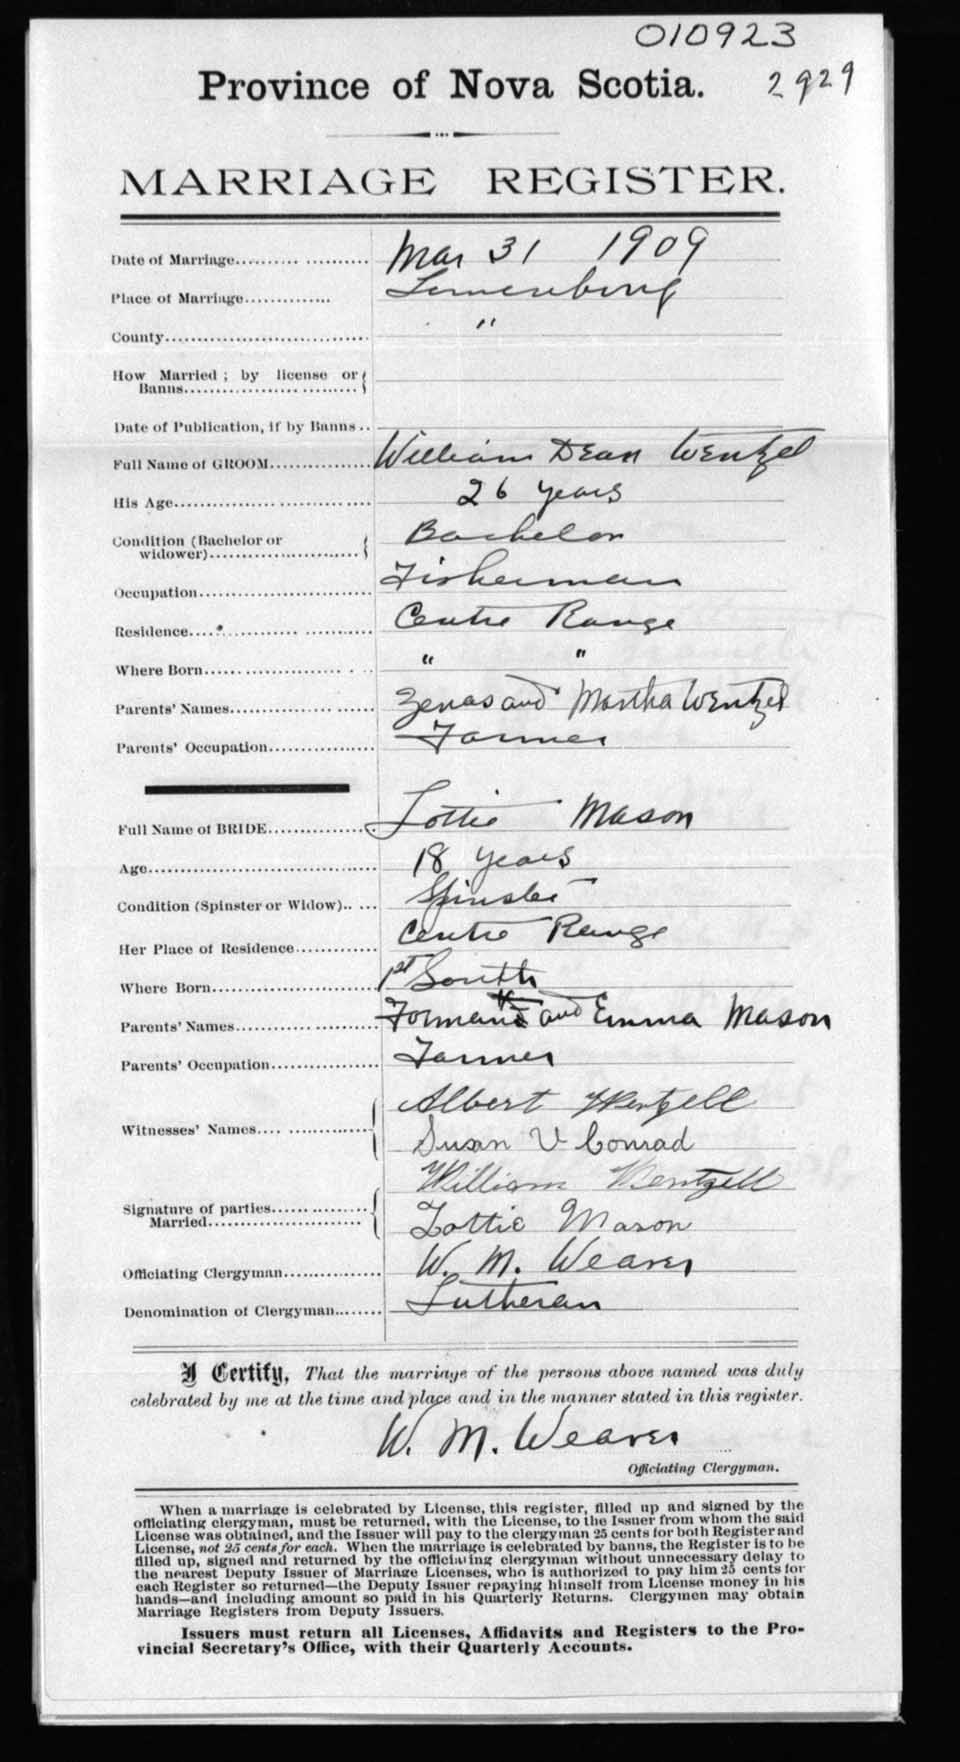 010923
Province of Nova Scotia. 2929
MARRIAGE REGISTER.
Date of Marriage.......... ........... Mar 31 1909
Place of Marriage.............. Lunenburg
County................................. "
How Married ; by license or
Banns..............................
Date of Publication, if by Banns ..
Full Name of GROOM................ William Dean Wentzel
His Age................................ 26 years
Condition (Bachelor or
widower).......................... Bachelor
Occupation............................ Fisherman
Residence.... .............. ........... Centre Range
Where Born...................... . .. " "
Parents' Names................ ........ Zenas and Martha Wentzel
Parents' Occupation................ Farmer
Full Name of BRIDE................ Lottie Mason
Age.................................... 18 years
Condition (Spinster or Widow).. ... Spinster
Her Place of Residence............. Centre Range
Where Born.......................... 1st South
Parents' Names....................... and Emma Mason
Parents' Occupation................. Farmer
Witnesses' Names.... ............... Albert Wentzell
Susan V Conrad
William Wentzell
Signature of parties................
Married......................... Lottie Mason
Officiating Clergyman................ W. M. Weaver
Denomination of Clergyman........ Lutheran
I Certify, That the marriage of the persons above named was duly
celebrated by me at the time and place and in the manner stated in this register.
W. M. Weaver
Officiating Clergyman.
When a marriage is celebrated by License, this register, filled up and signed by the
officiating clergyman, must be returned, with the License, to the Issuer from whom the said
License was obtained, and the Issuer will pay to the clergyman 25 cents for both Register and
License, not 25 cents for each. When the marriage is celebrated by banns, the Register is to be
filled up, signed and returned by the officiating clergyman without unnecessary delay to
the nearest Deputy Issuer of Marriage Licenses, who is authorized to pay him 25 cents for
each Register so returned—the Deputy Issuer repaying himself from License money in his
hands—and including amount so paid in his Quarterly Returns. Clergymen may obtain
Marriage Registers from Deputy Issuers.
Issuers must return all Licenses, Affidavits and Registers to the Pro-
vincial Secretary's Office, with their Quarterly Accounts.